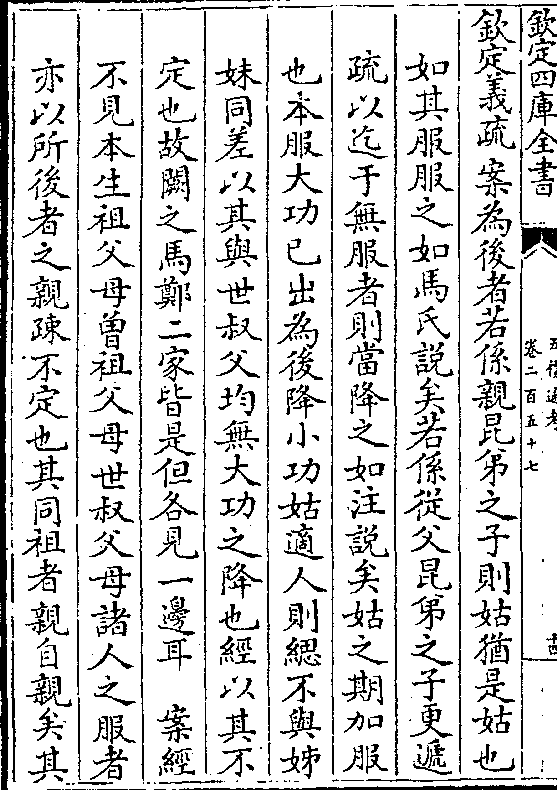 欽定四庫全書
五禮通考
卷二百五十七
欽定義疏案為後者若係親昆弟之子則姑猶是姑也
如其服服之如馬氏說矣若係從父昆弟之子更遞
疏以迄于無服者則當降之如注說矣姑之期加服
也本服大功已出為後降小功姑適人則緦不與姊
妹同差以其與世叔父均無大功之降也經以其不
定也故闕之馬鄭二家皆是但各見一邊耳 案經
不見本生祖父母曽祖父母世叔父母諸人之服者
亦以所後者之親疎不定也其同祖者親自親矣其